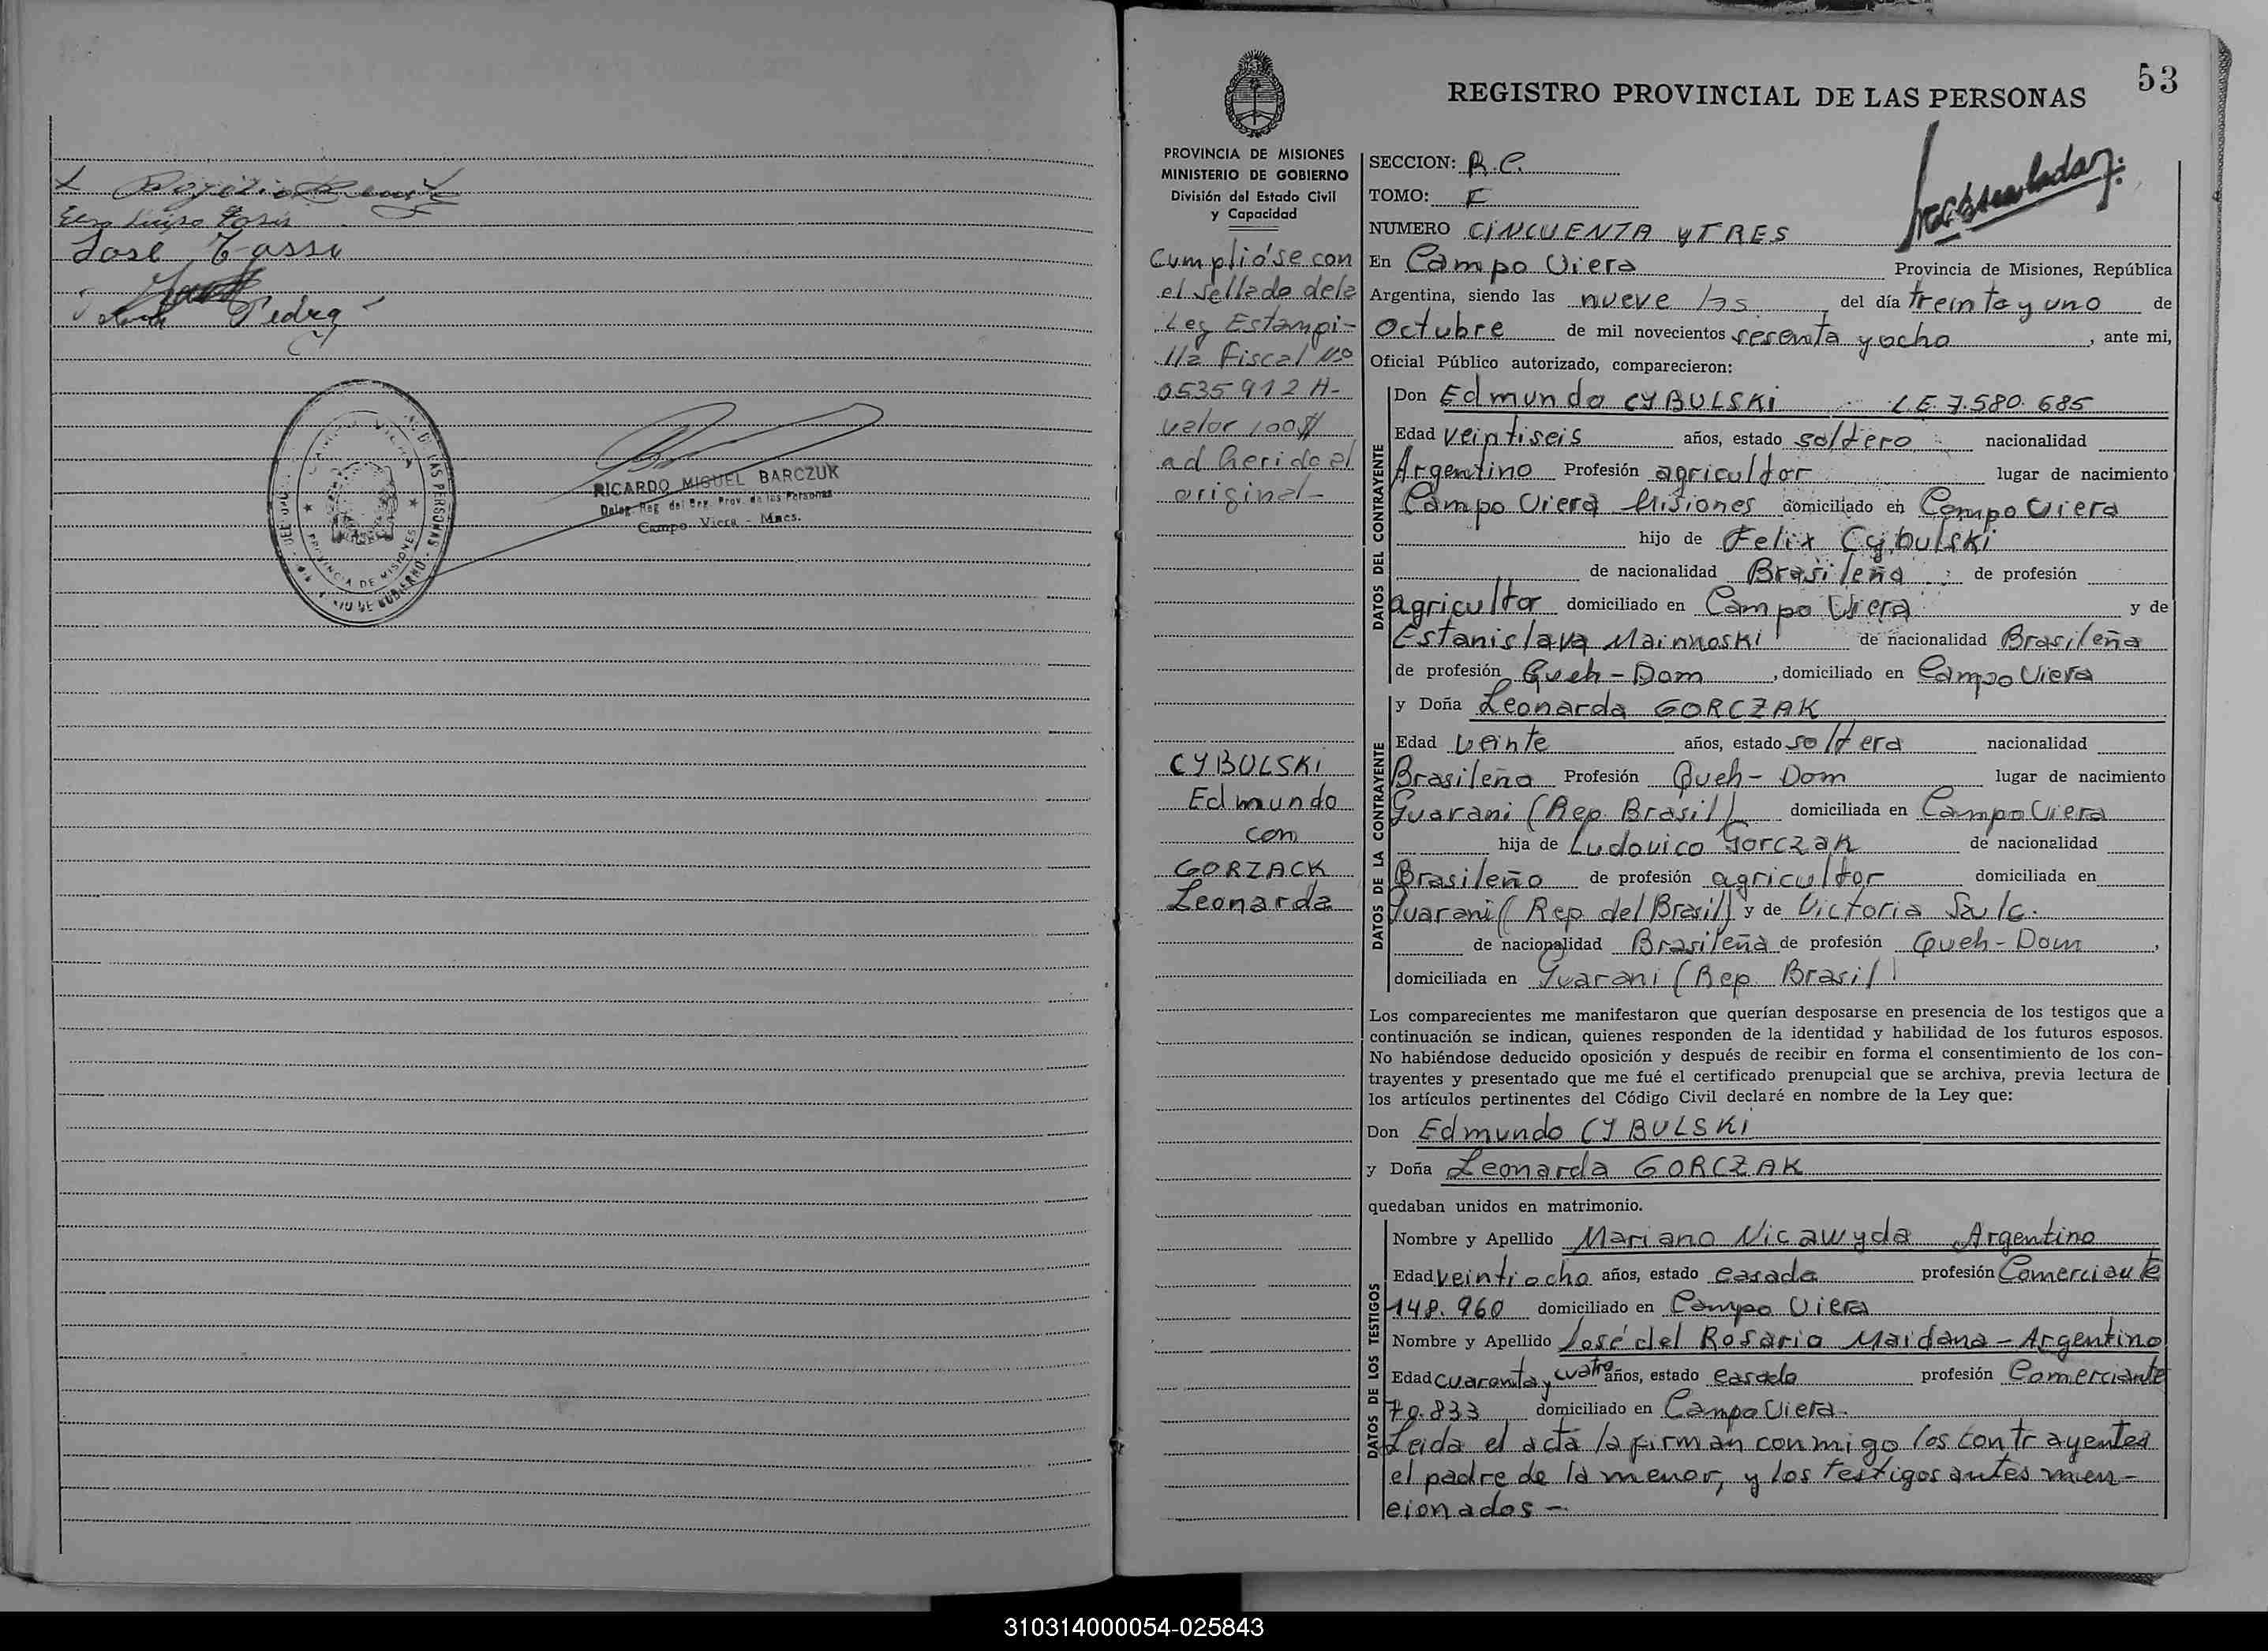 José Tassi
Pedra
RICARDO MIGUEL BARCZUK
Deleg. Reg. del Reg. Prov. de las Personas
Campo Viera - Mnes.
PROVINCIA DE MISIONES
53
REGISTRO PROVINCIAL DE LAS PERSONAS
PROVINCIA DE MISIONES
MINISTERIO DE GOBIERNO
División del Estado Civil
y Capacidad
Cumplióse con
el sellado dela
Ley Estampi-
lla Fiscal Nº
0535912 A-
valor 100$
adherido al
original-
CYBULSKI
Edmundo
con
GORZACK
Leonarda
SECCION: R.C.
TOMO: F
NUMERO CINCUENTA y TRES
En Campo Viera Provincia de Misiones, República
Argentina, siendo las nueve hs del día treinta y uno de
Octubre de mil novecientos sesenta y ocho, ante mi,
Oficial Público autorizado, comparecieron:
DATOS DEL CONTRAYENTE
Don Edmundo CYBULSKI L.E. 7.580.685
Edad veintiseis años, estado soltero nacionalidad
Argentino Profesión agricultor lugar de nacimiento
Campo Viera Misiones domiciliado en Campo Viera
hijo de Felix Cybulski
de nacionalidad Brasileña de profesión
agricultor domiciliado en Campo Viera y de
Estanislava Mainnoski de nacionalidad Brasileña
de profesión Queh-Dom, domiciliado en Campo Viera
DATOS DE LA CONTRAYENTE
y Doña Leonarda GORCZAK
Edad veinte años, estado soltera nacionalidad
Brasileña Profesión Queh-Dom lugar de nacimiento
Guarani (Rep. Brasil) domiciliada en Campo Viera
hija de Ludovico Gorczak de nacionalidad
Brasileño de profesión agricultor domiciliada en
Guarani (Rep. del Brasil) y de Victoria Szulc.
de nacionalidad Brasileña de profesión Queh-Dom,
domiciliada en Guarani (Rep. Brasil)
Los comparecientes me manifestaron que querían desposarse en presencia de los testigos que a
continuación se indican, quienes responden de la identidad y habilidad de los futuros esposos.
No habiéndose deducido oposición y después de recibir en forma el consentimiento de los con-
trayentes y presentado que me fué el certificado prenupcial que se archiva, previa lectura de
los artículos pertinentes del Código Civil declaré en nombre de la Ley que:
Don Edmundo CYBULSKI
y Doña Leonarda GORCZAK
quedaban unidos en matrimonio.
DATOS DE LOS TESTIGOS
Nombre y Apellido Mariano Nicawyda Argentino
Edad veintiocho años, estado casado profesión Comerciante
148.960 domiciliado en Campo Viera
Nombre y Apellido José del Rosario Maidana - Argentino
Edad cuarenta y cuatro años, estado casado profesión Comerciante
79.833 domiciliado en Campo Viera.
Leida el acta la firman conmigo los contrayentes
el padre de la menor, y los testigos antes men-
cionados-
310314000054-025843